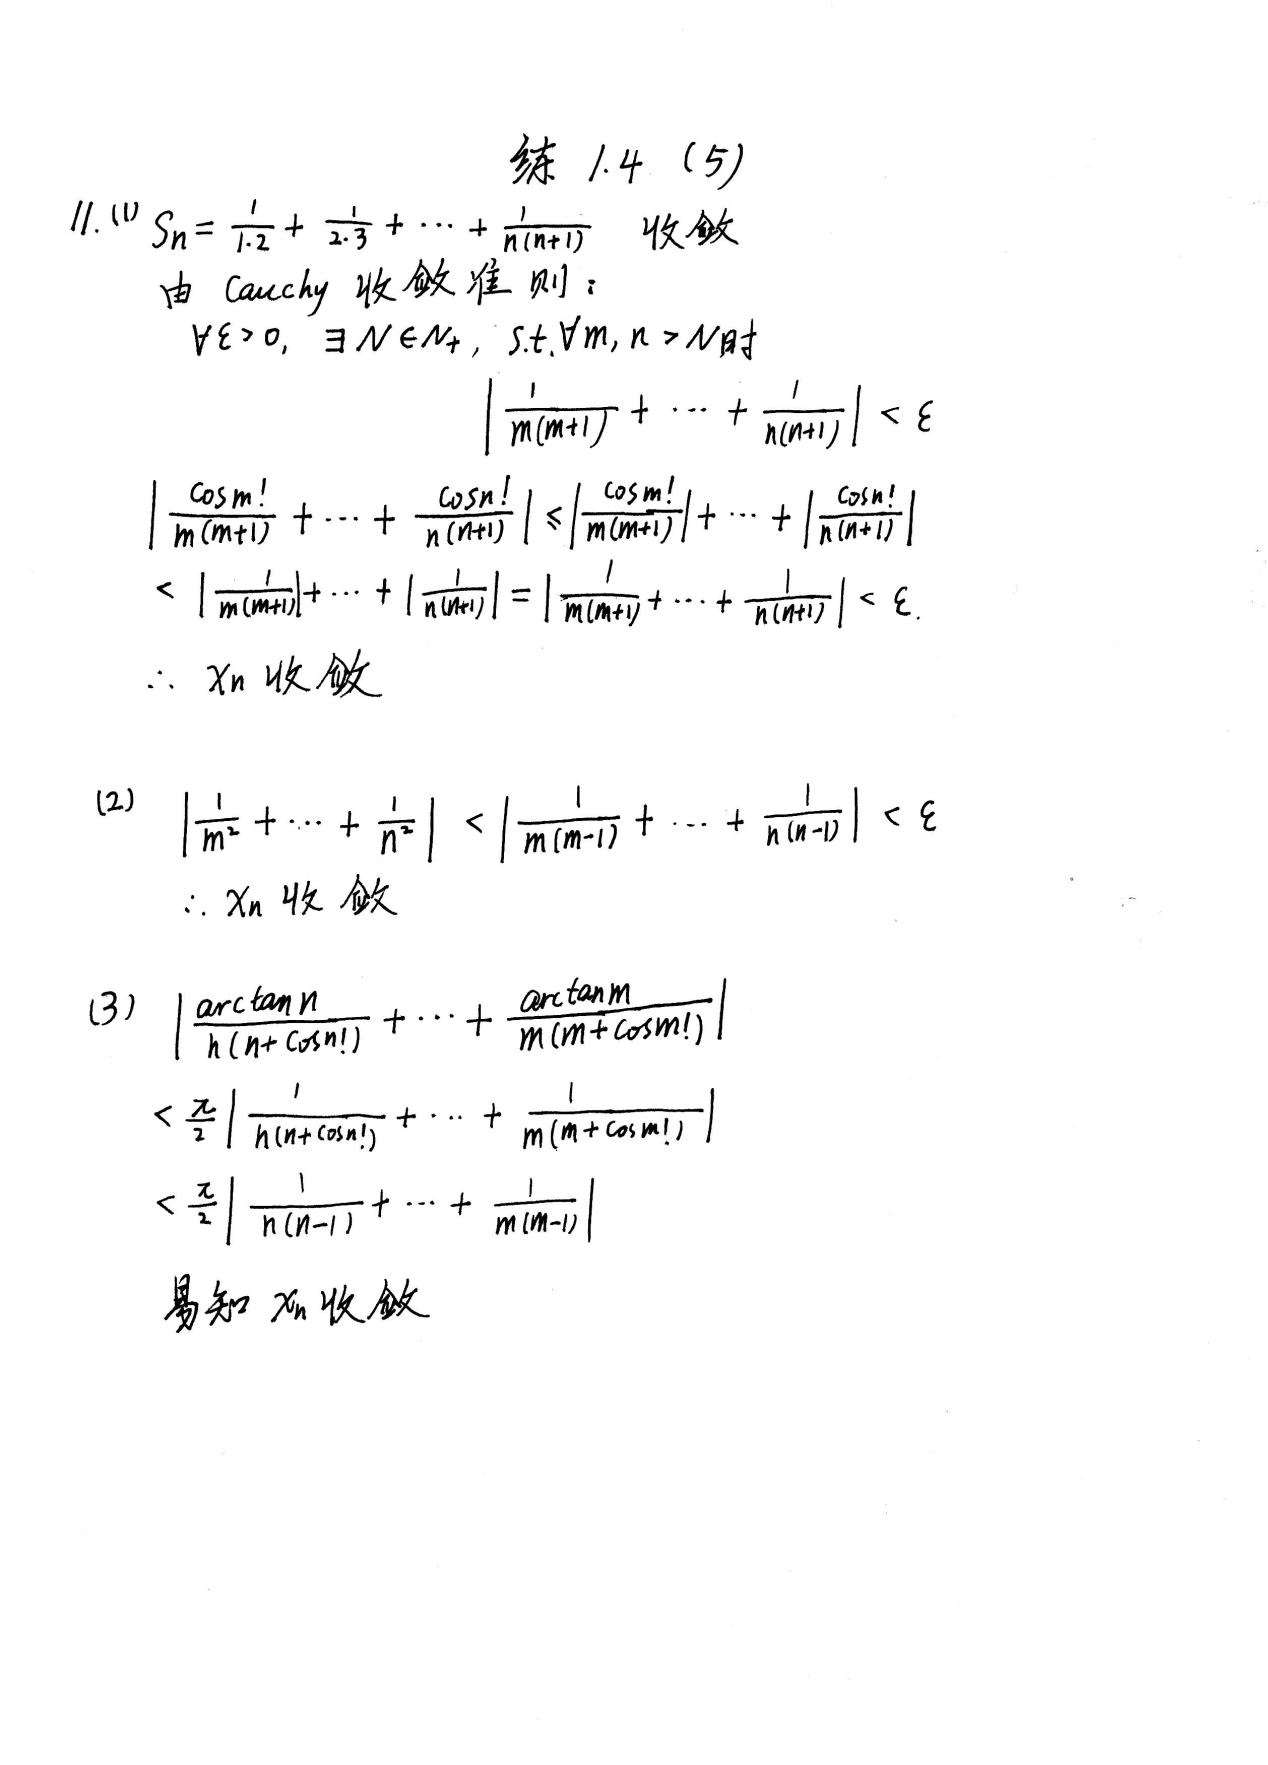 练 1.4 (5)
11. (1) Sn = 1/(1·2) + 1/(2·3) + ··· + 1/(n(n+1)) 收敛
由 Cauchy 收敛准则:
∀ε>0, ∃N∈N₊, s.t. ∀m, n > N时
|1/(m(m+1)) + ··· + 1/(n(n+1))| < ε
|cosm!/(m(m+1)) + ··· + cosn!/(n(n+1))| ≤ |cosm!/(m(m+1))| + ··· + |cosn!/(n(n+1))|
< |1/(m(m+1))| + ··· + |1/(n(n+1))| = |1/(m(m+1)) + ··· + 1/(n(n+1))| < ε.
∴ xn 收敛
(2) |1/m² + ··· + 1/n²| < |1/(m(m-1)) + ··· + 1/(n(n-1))| < ε
∴ xn 收敛
(3) |arctann/(n(n+cosn!)) + ··· + arctanm/(m(m+cosm!))|
< π/2 |1/(n(n+cosn!)) + ··· + 1/(m(m+cosm!))|
< π/2 |1/(n(n-1)) + ··· + 1/(m(m-1))|
易知 xn 收敛